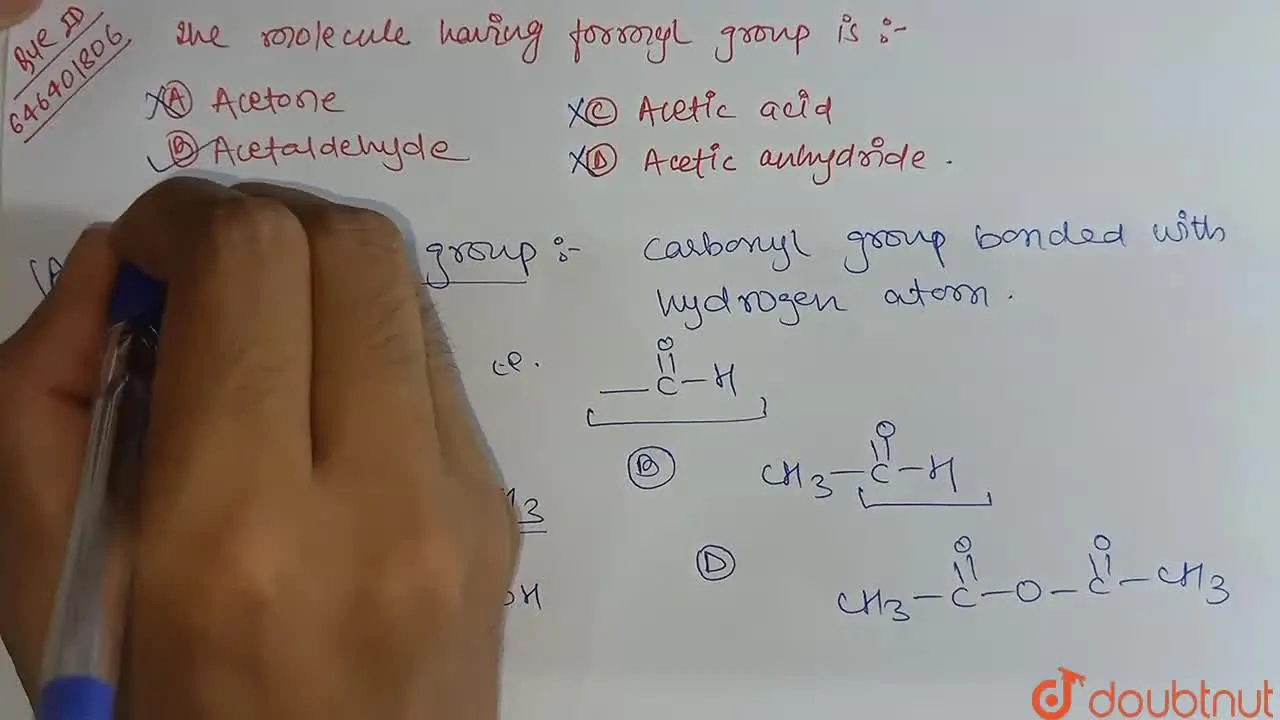 Bye ID
646401806
The molecule having formyl group is :-
A Acetone
B Acetaldehyde
C Acetic acid
D Acetic anhydride .
group :- carbonyl group bonded with
hydrogen atom .
O
— C — H
B
O
CH3 — C — H
D
O O
CH3 — C — O — C — CH3
doubtnut